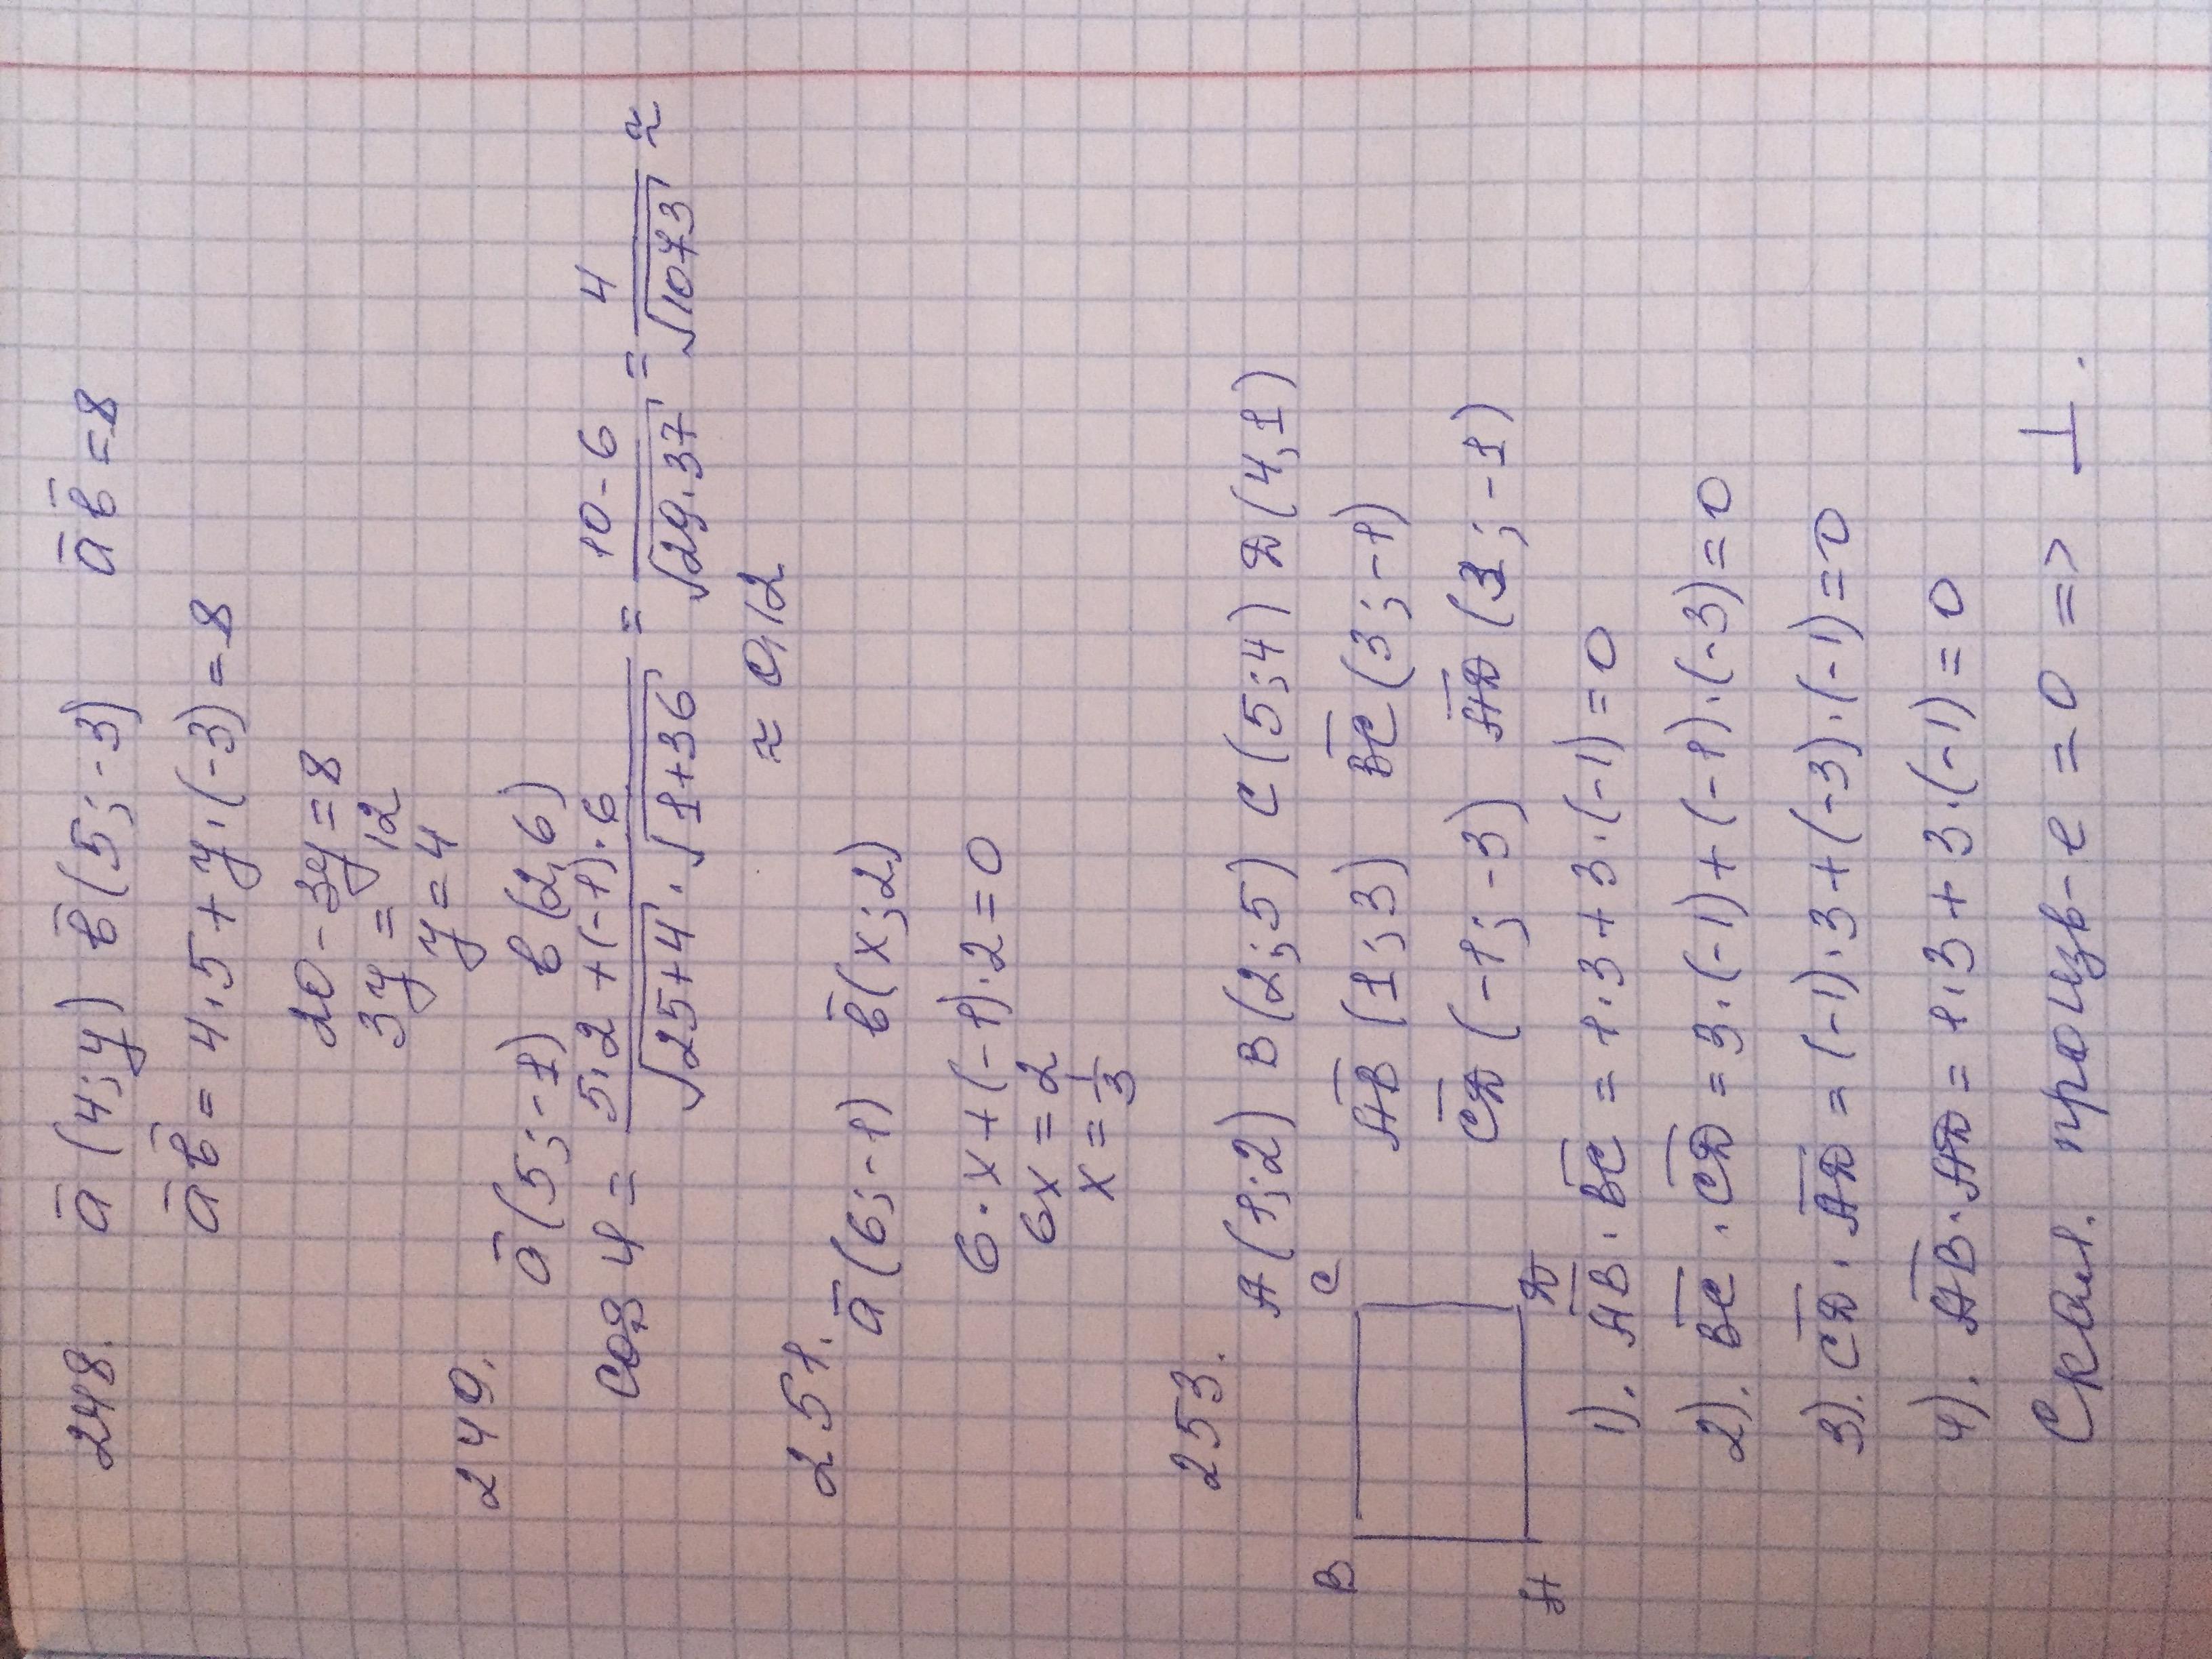 248. ā(4;y) в̄(5;-3) āв̄=8
āв̄=4·5+y·(-3)=8
20-3y=8
3y=12
y=4
249. ā(5;-1) в(2,6)
cos φ = (5·2+(-1)·6)/(√25+4·√1+36) = (10-6)/(√29·37) = 4/√1073 ≈
≈ 0,12
251.
ā(6;-1) в̄(x;2)
6·x+(-1)·2=0
6x=2
x=1/3
253. A(1;2) B(2;5) C(5;4) D(4,1)
B C A D
A̅B̅ (1;3) B̅C̅(3;-1)
C̅D̅ (-1;-3) A̅D̅ (3;-1)
1). A̅B̅·B̅C̅ = 1·3+3·(-1)=0
2). B̅C̅·C̅D̅ = 3·(-1)+(-1)·(-3)=0
3). C̅D̅·A̅D̅ = (-1)·3+(-3)·(-1)=0
4). A̅B̅·A̅D̅ = 1·3+3·(-1)=0
Скал. произв-е = 0 => ⊥.